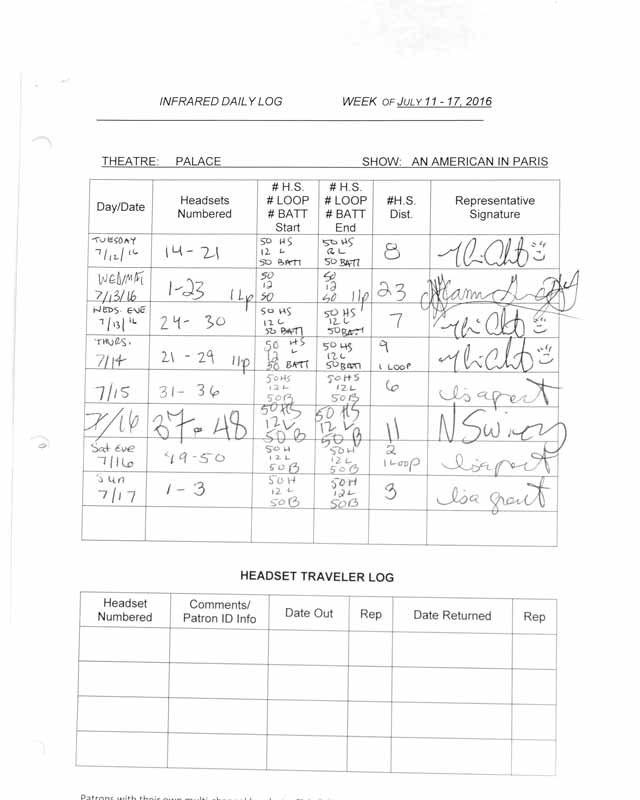 INFRARED DAILY LOG WEEK OF JULY 11 - 17, 2016
THEATRE: PALACE SHOW: AN AMERICAN IN PARIS
Day/Date Headsets Numbered # H.S. # LOOP # BATT Start # H.S. # LOOP # BATT End #H.S. Dist. Representative Signature
TUESDAY 7/12/16 14-21 50 HS 12 L 50 BATT 50 HS 12 L 50 BATT 8
WED/MAT 7/13/16 1-23 1Lp 50 12 50 50 12 50 1Lp 23
WEDS. EVE 7/13/16 24-30 50 HS 12 L 50 BATT 50 HS 12 L 50 BATT 7
THURS. 7/14 21-29 1Lp 50 HS 12 L 50 BATT 50 HS 12 L 50 BATT 9 1 LOOP
7/15 31-36 50 HS 12 L 50 B 50 HS 12 L 50 B 6
7/16 37-48 50 HS 12 L 50 B 50 HS 12 L 50 B 11
Sat Eve 7/16 49-50 50 H 12 L 50 B 50 H 12 L 50 B 2 1 LOOP
Sun 7/17 1-3 50 H 12 L 50 B 50 H 12 L 50 B 3 lisa grant
HEADSET TRAVELER LOG
Headset Numbered Comments/ Patron ID Info Date Out Rep Date Returned Rep